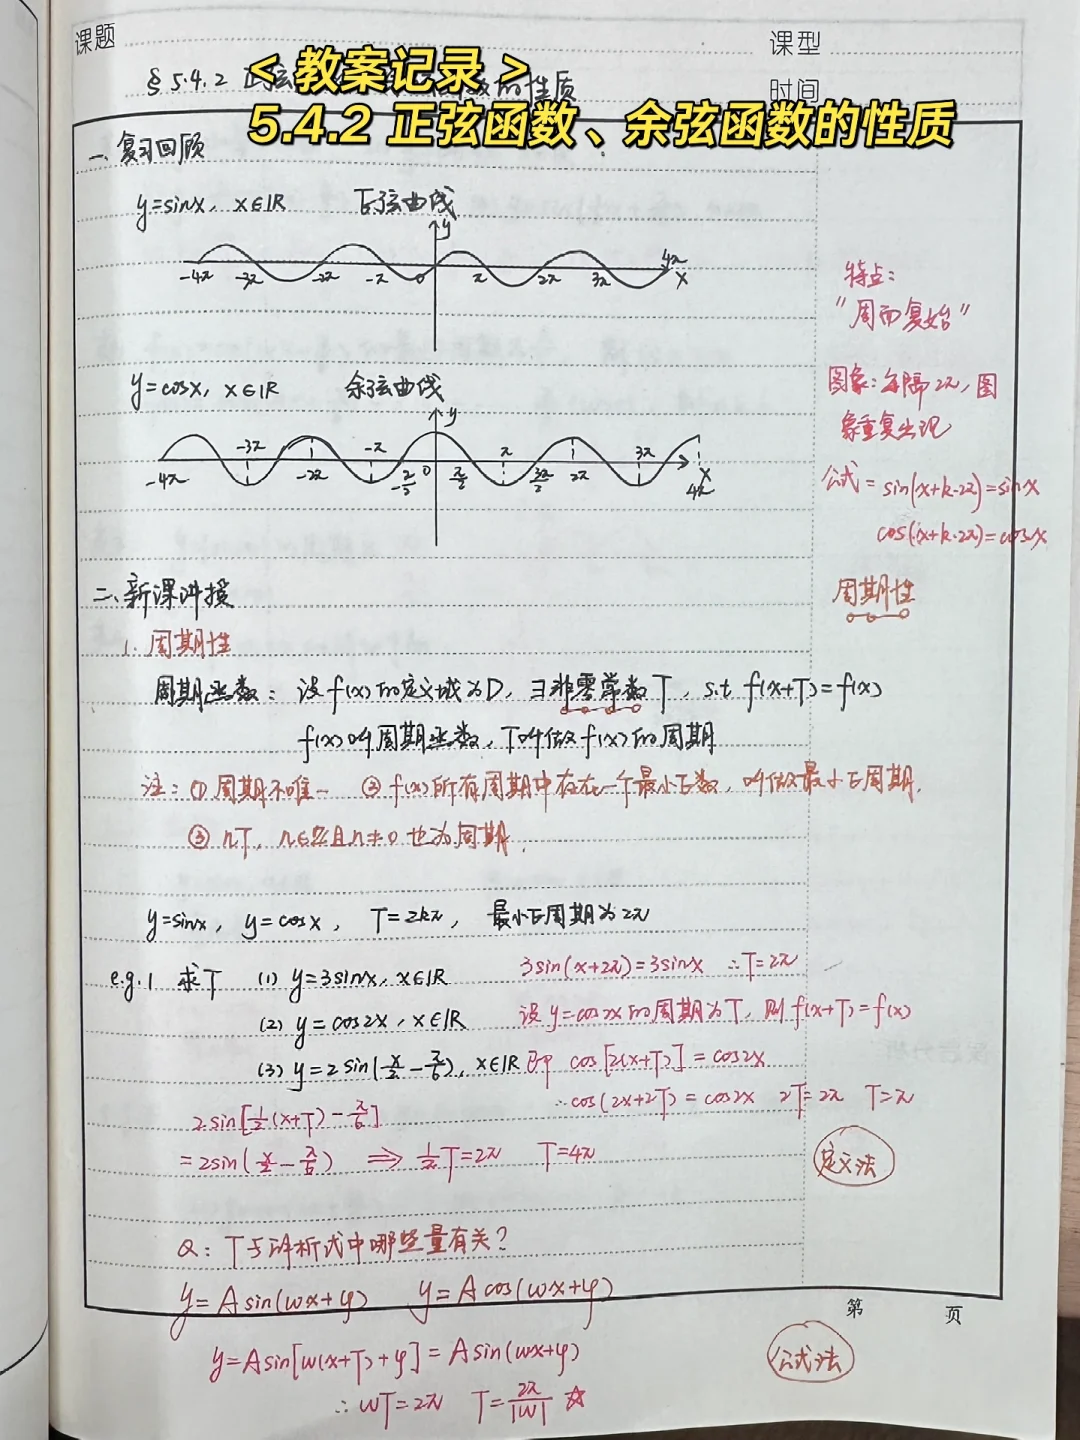 课题
课型
<教案记录>
§5.4.2 正弦
的性质
时间
5.4.2 正弦函数、余弦函数的性质
一、复习回顾
y=sinx, x∈R 正弦曲线
y
-4π -3π -2π -π 0 π 2π 3π 4π x
特点:
"周而复始"
y=cosx, x∈R 余弦曲线
图象:每隔2π,图
象重复出现
y
-3π -π π 3π
-4π -2π -π/2 0 π/2 3π/2 2π 4π x
公式=sin(x+k·2π)=sinx
cos(x+k·2π)=cosx
二、新课讲授
周期性
1. 周期性
周期函数:设f(x)的定义域为D,∃非零常数T,s.t f(x+T)=f(x)
f(x)叫周期函数,T叫做f(x)的周期
注:①周期不唯一 ②f(x)所有周期中存在一个最小正数,叫做最小正周期.
③nT,n∈Z且n≠0也为周期.
y=sinx, y=cosx, T=2kπ, 最小正周期为2π
e.g.1 求T (1) y=3sinx, x∈R 3sin(x+2π)=3sinx ∴T=2π
(2) y=cos2x, x∈R 设y=cos2x的周期为T,则f(x+T)=f(x)
(3) y=2sin(x/2-π/6), x∈R 即 cos[2(x+T)]=cos2x
2sin[1/2(x+T)-π/6] ∴cos(2x+2T)=cos2x 2T=2π T=π
=2sin(x/2-π/6) ⇒ 1/2T=2π T=4π
定义法
Q:T与解析式中哪些量有关?
y=Asin(ωx+φ) y=Acos(ωx+φ)
第 页
y=Asin[ω(x+T)+φ]=Asin(ωx+φ)
公式法
∴ωT=2π T=2π/|ω| ☆